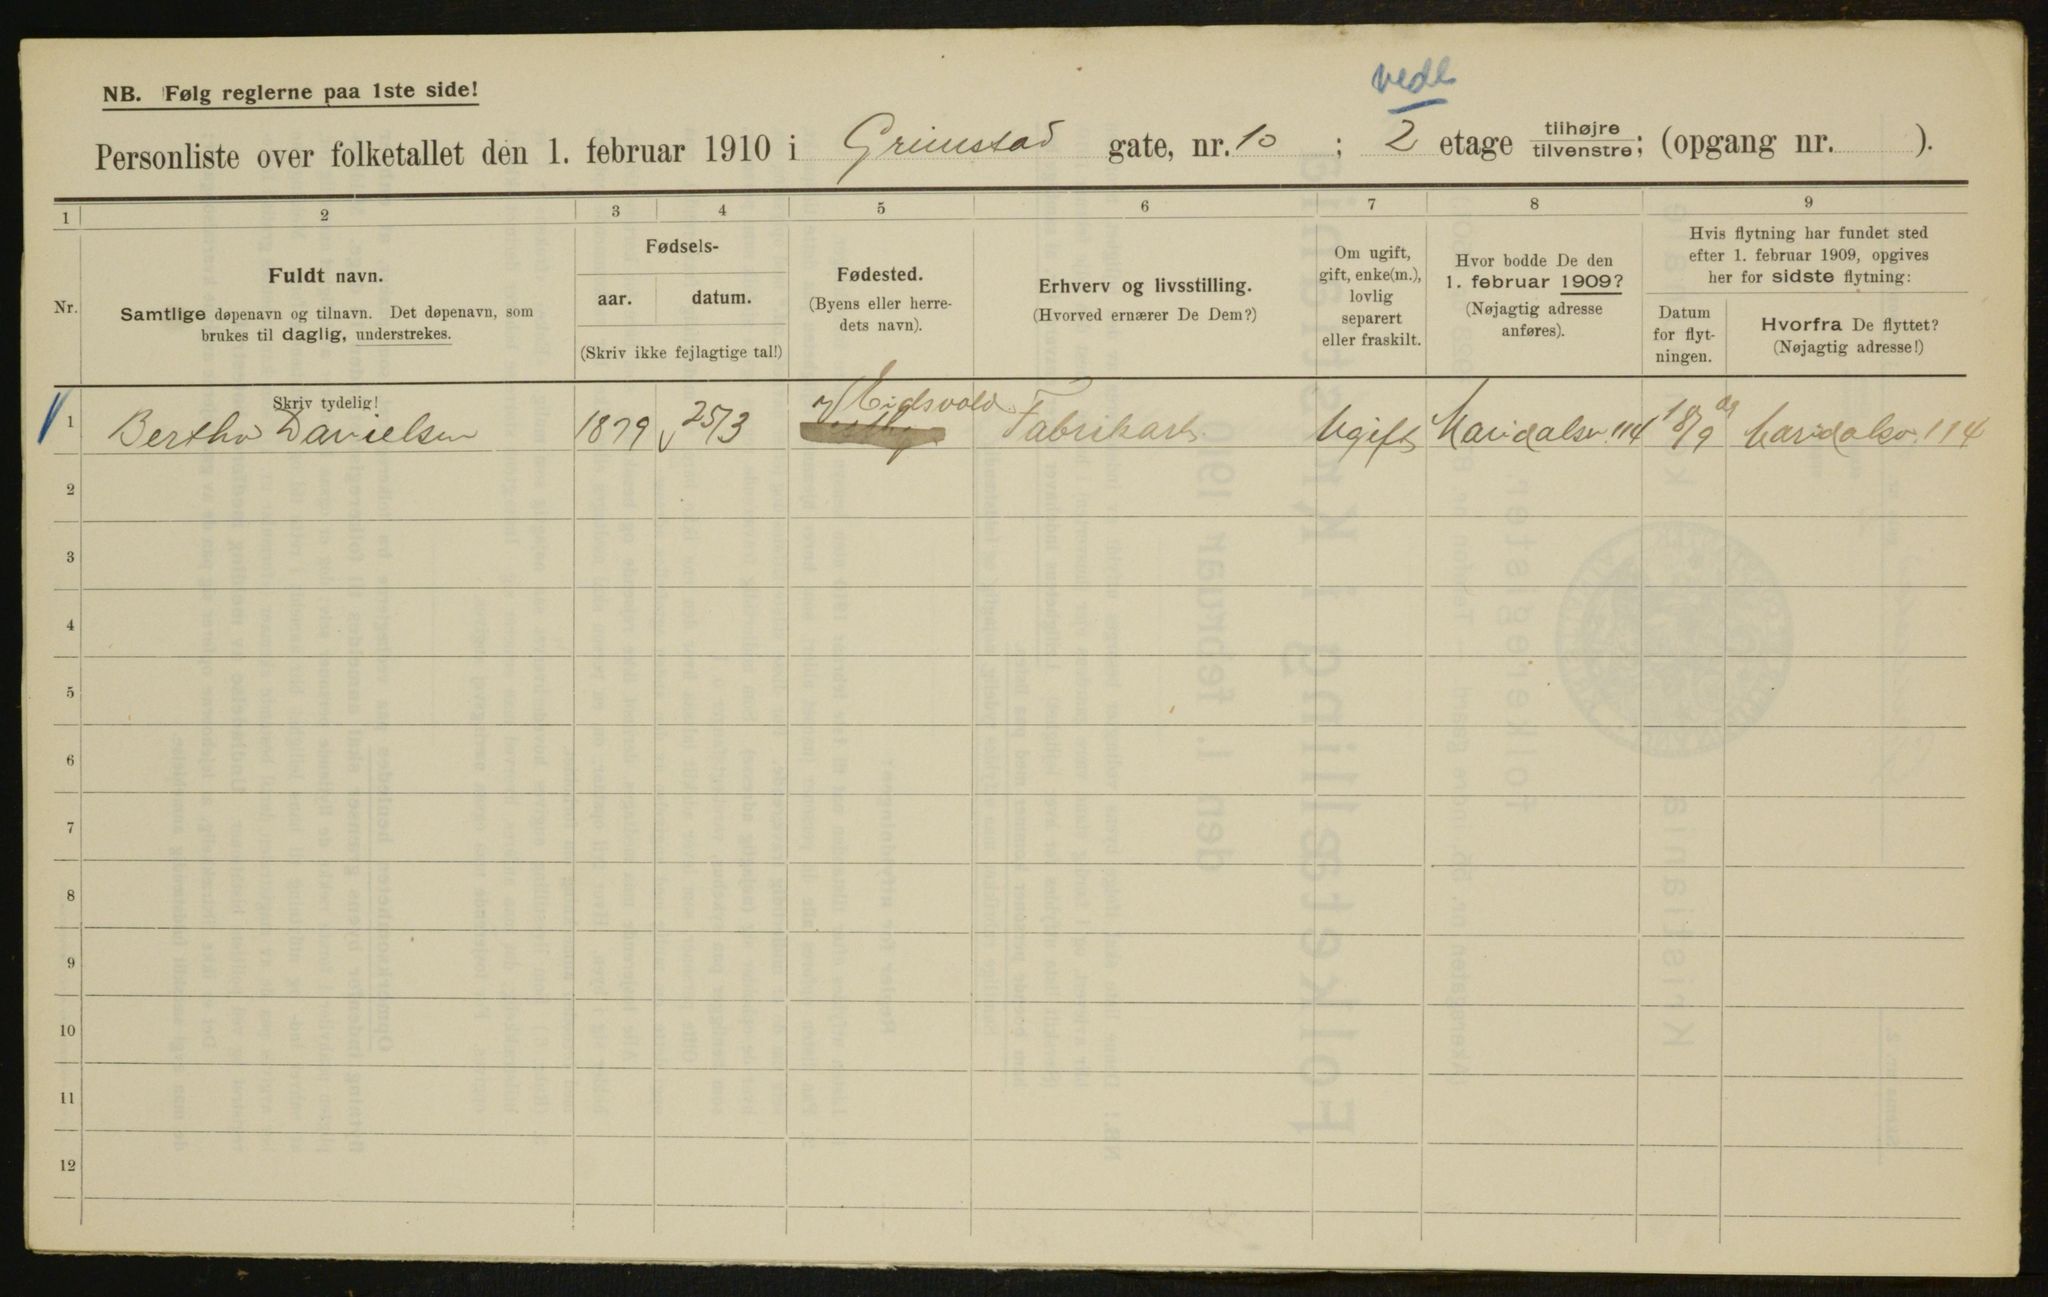 vedl
NB. Følg reglerne paa 1ste side!
Personliste over folketallet den 1. februar 1910 i Grimstad gate, nr. 10 ; 2 etage tilhøjre tilvenstre; (opgang nr. ).
1 2 3 4 5 6 7 8 9
Nr.
Fuldt navn.
Samtlige døpenavn og tilnavn. Det døpenavn, som
brukes til daglig, understrekes.
Skriv tydelig!
Fødsels-
aar. datum.
(Skriv ikke fejlagtige tal!)
Fødested.
(Byens eller herre-
dets navn).
Erhverv og livsstilling.
(Hvorved ernærer De Dem?)
Om ugift,
gift, enke(m.),
lovlig
separert
eller fraskilt.
Hvor bodde De den
1. februar 1909?
(Nøjagtig adresse
anføres).
Hvis flytning har fundet sted
efter 1. februar 1909, opgives
her for sidste flytning:
Datum
for flyt-
ningen.
Hvorfra De flyttet?
(Nøjagtig adresse!)
1 Bertha Danielsen 1879 25/3 Eidsvold Fabrikarb. Ugift Maridalsv. 114 18/9 09 Maridalsv. 114
2
3
4
5
6
7
8
9
10
11
12